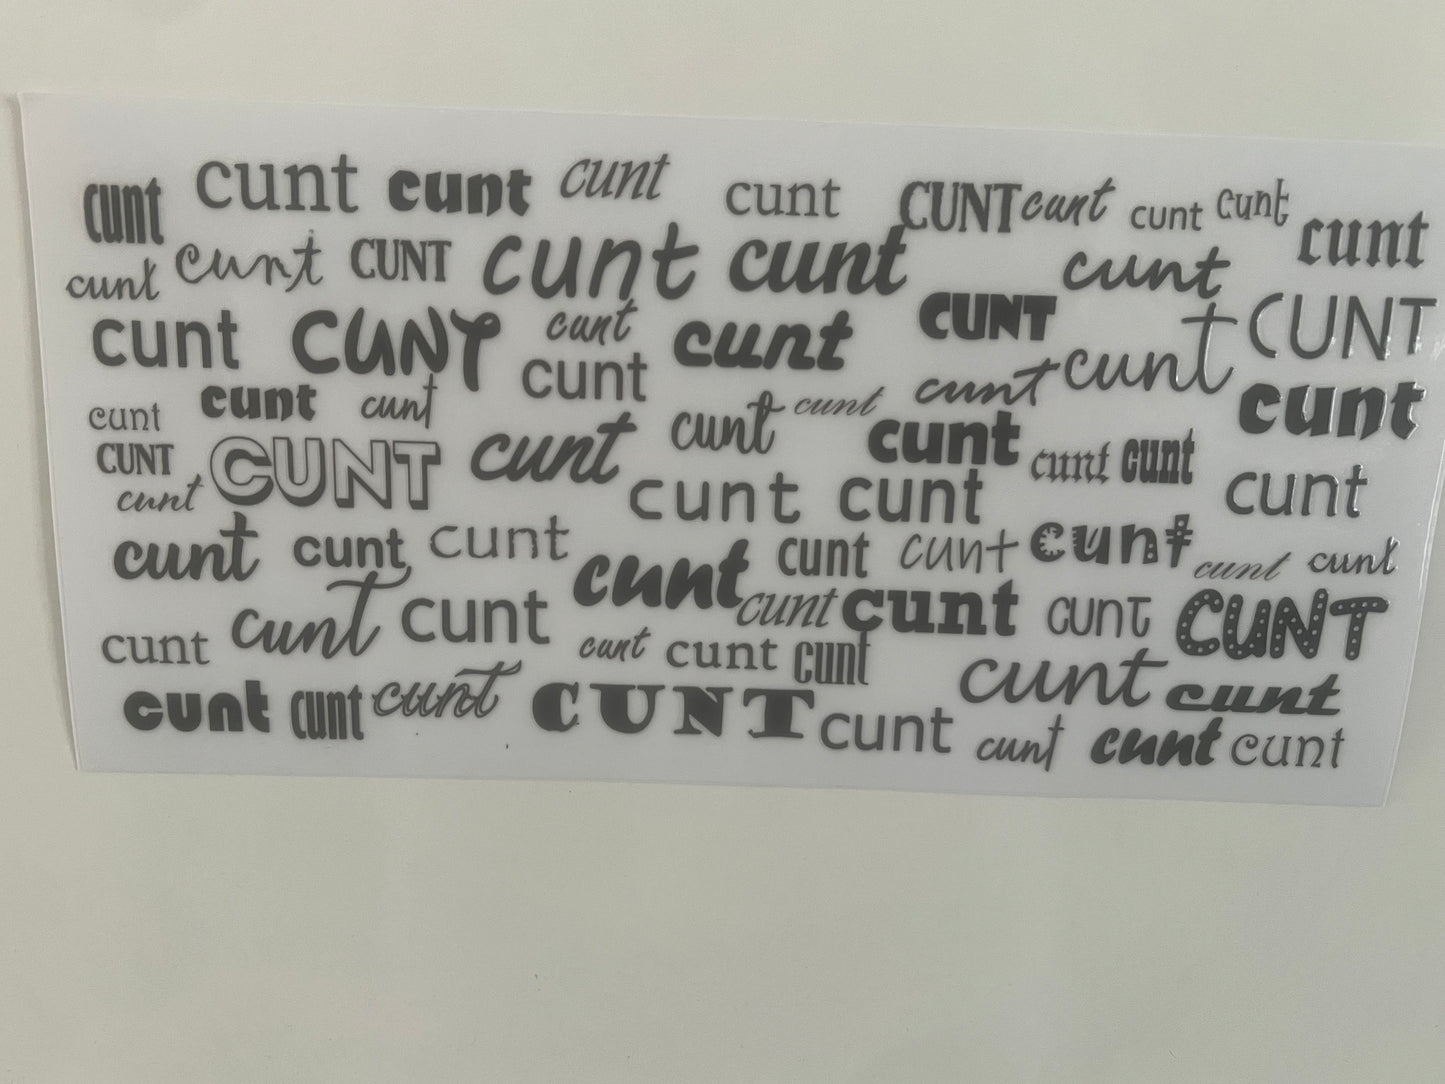 cunt cunt cunt cunt cunt CUNT cunt cunt cunt cunt
cunt cunt CUNT cunt cunt cunt
cunt CUNT cunt cunt CUNT cunt CUNT
cunt cunt cunt cunt cunt cunt cunt cunt
CUNT CUNT cunt cunt cunt cunt cunt
cunt cunt cunt cunt
cunt cunt cunt cunt cunt cunt cunt cunt cunt
cunt cunt cunt cunt cunt CUNT
cunt cunt cunt cunt cunt cunt
cunt cunt cunt CUNT cunt cunt cunt cunt